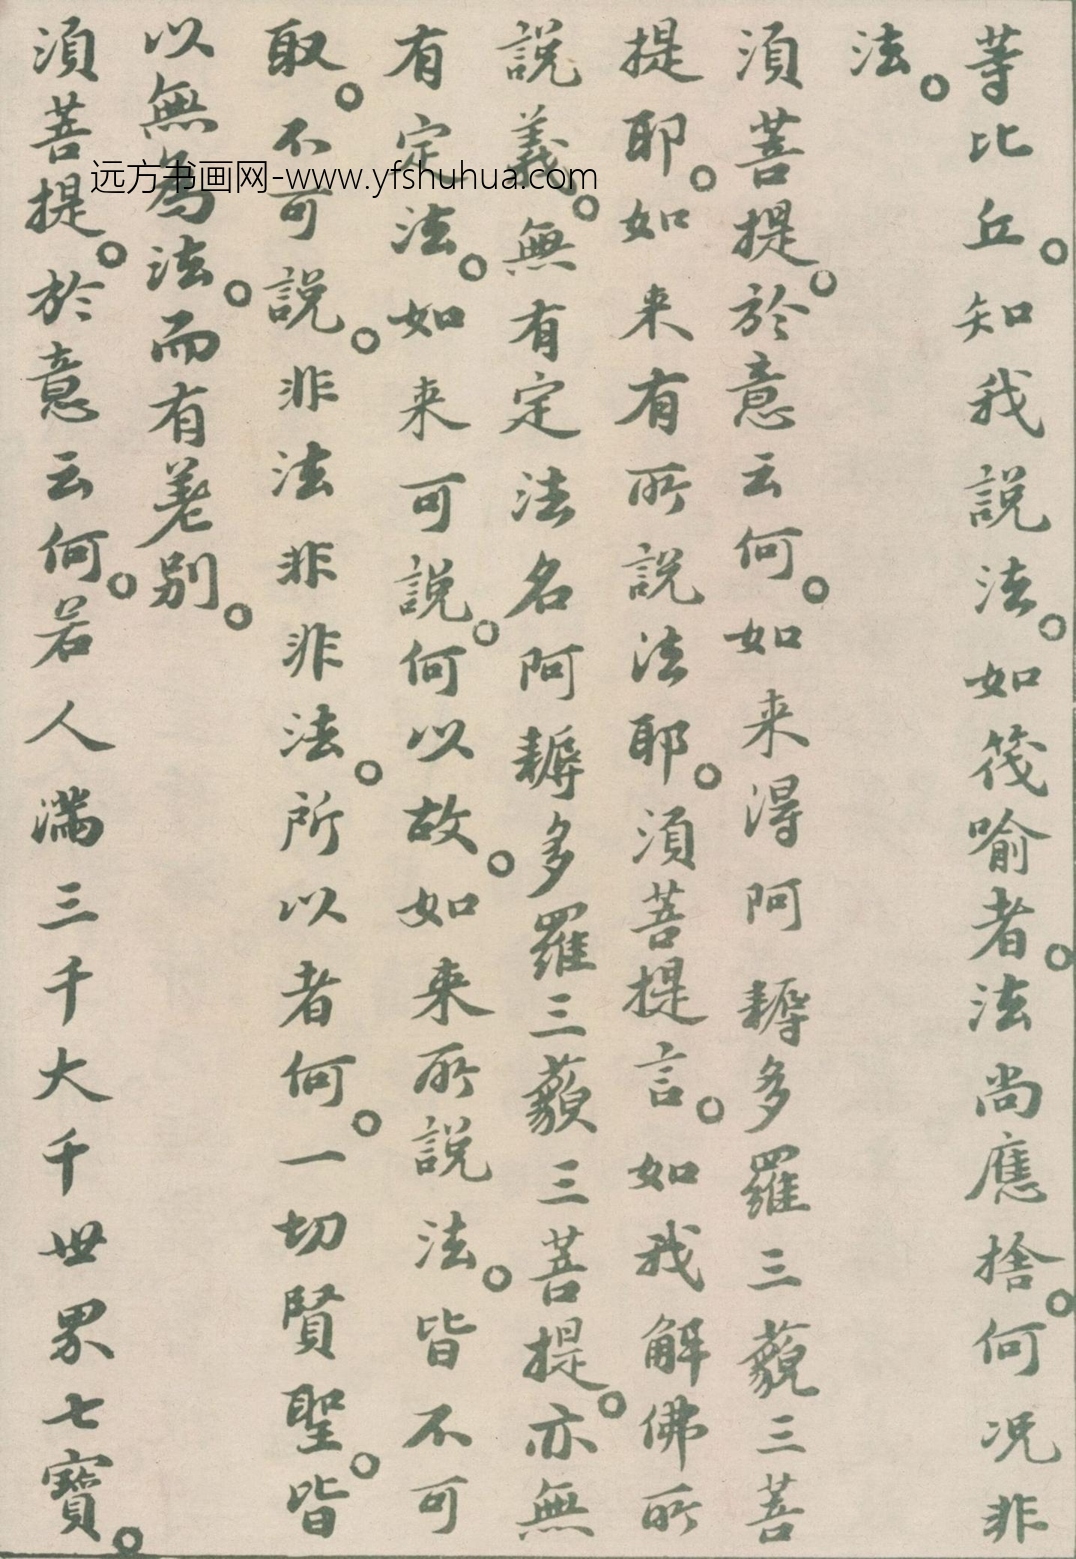 等比丘。知我說法。如筏喻者。法尚應捨。何况非
法。
須菩提。於意云何。如来得阿耨多羅三藐三菩
提耶。如来有所說法耶。須菩提言。如我解佛所
說義。無有定法名阿耨多羅三藐三菩提。亦無
有定法。如来可說。何以故。如来所說法。皆不可
取。不可說。非法非非法。所以者何。一切賢聖。皆
以無為法。而有差别。
須菩提。於意云何。若人滿三千大千世界七寶。
远方书画网-www.yfshuhua.com